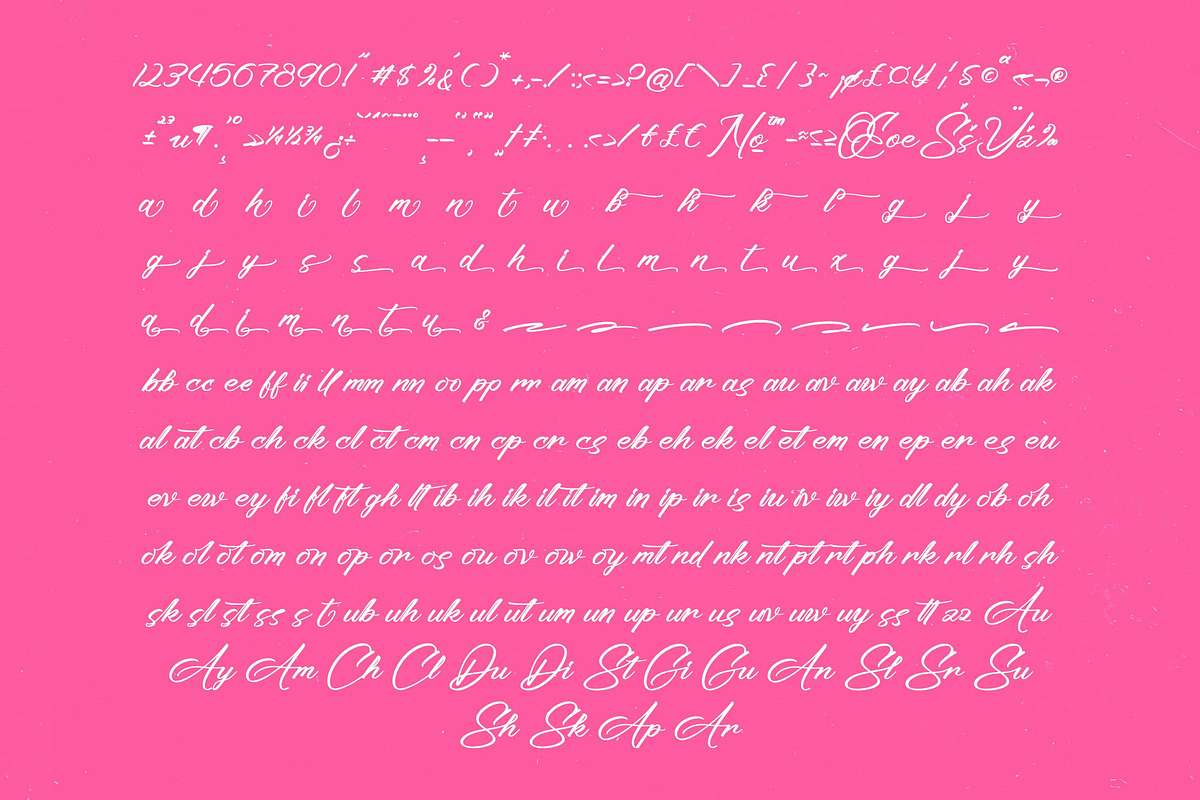 1234567890!"#$%&'()*+,-./:;<=>?@[\]_{|}~¡¢£¤¥¦§©ª«¬®
±²³µ¶·¸¹º»¼½¾¿÷ – — † ‡ • . . . ‹ › ⁄ £ € № ™ − ≈ ≤ ≥ Œ œ Š š Ÿ ž ‰
a d h i l m n t u b h k l g j y
g j y s s a d h i l m n t u x g j y
a d i m n t u &
bb cc ee ff ii ll mm nn oo pp rr am an ap ar as au av aw ay ab ah ak
al at cb ch ck cl ct cm cn cp cr cs eb eh ek el et em en ep er es eu
ev ew ey fi fl ft gh lt ib ih ik il it im in ip ir is iu iv iw iy dl dy ob oh
ok ol ot om on op or os ou ov ow oy mt nd nk nt pt rt ph rk rl rh sh
sk sl st ss s t ub uh uk ul ut um un up ur us uv uw uy ss tt zz Au
Ay Am Ch Cl Du Di St Gi Gu An Sl Sr Su
Sh Sk Ap Ar